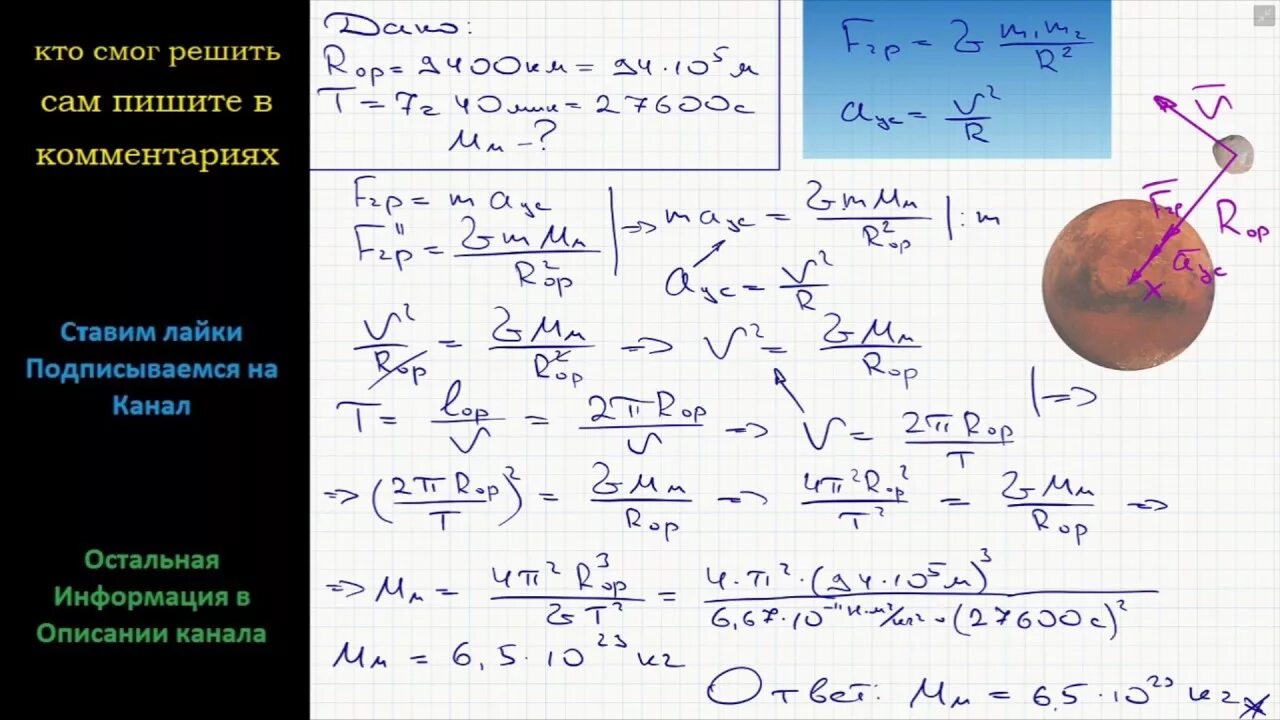 кто смог решить
сам пишите в
комментариях
Ставим лайки
Подписываемся на
Канал
Остальная
Информация в
Описании канала
Дано:
Rор = 9400км = 94·10⁵м
T = 7г 40мин = 27600с
Mм - ?
Fгр = G m₁m₂/R²
aус = V²/R
Fгр = m aус
Fгр = G m Mм/R²ор
=> m aус = G m Mм/R²ор | :m
aус = V²/R
V²/Rор = G Mм/R²ор => V² = G Mм/Rор
T = lор/V = 2πRор/V => V = 2πRор/T | =>
=> (2πRор/T)² = G Mм/Rор => 4π²Rор²/T² = G Mм/Rор =>
=> Mм = 4π²R³ор/G T² = 4·π²·(94·10⁵м)³/6,67·10⁻¹¹ н·м²/кг²·(27600с)²
Mм = 6,5·10²³ кг
Ответ: Mм = 6,5·10²³ кг
V
Fгр
Rор
aус
x